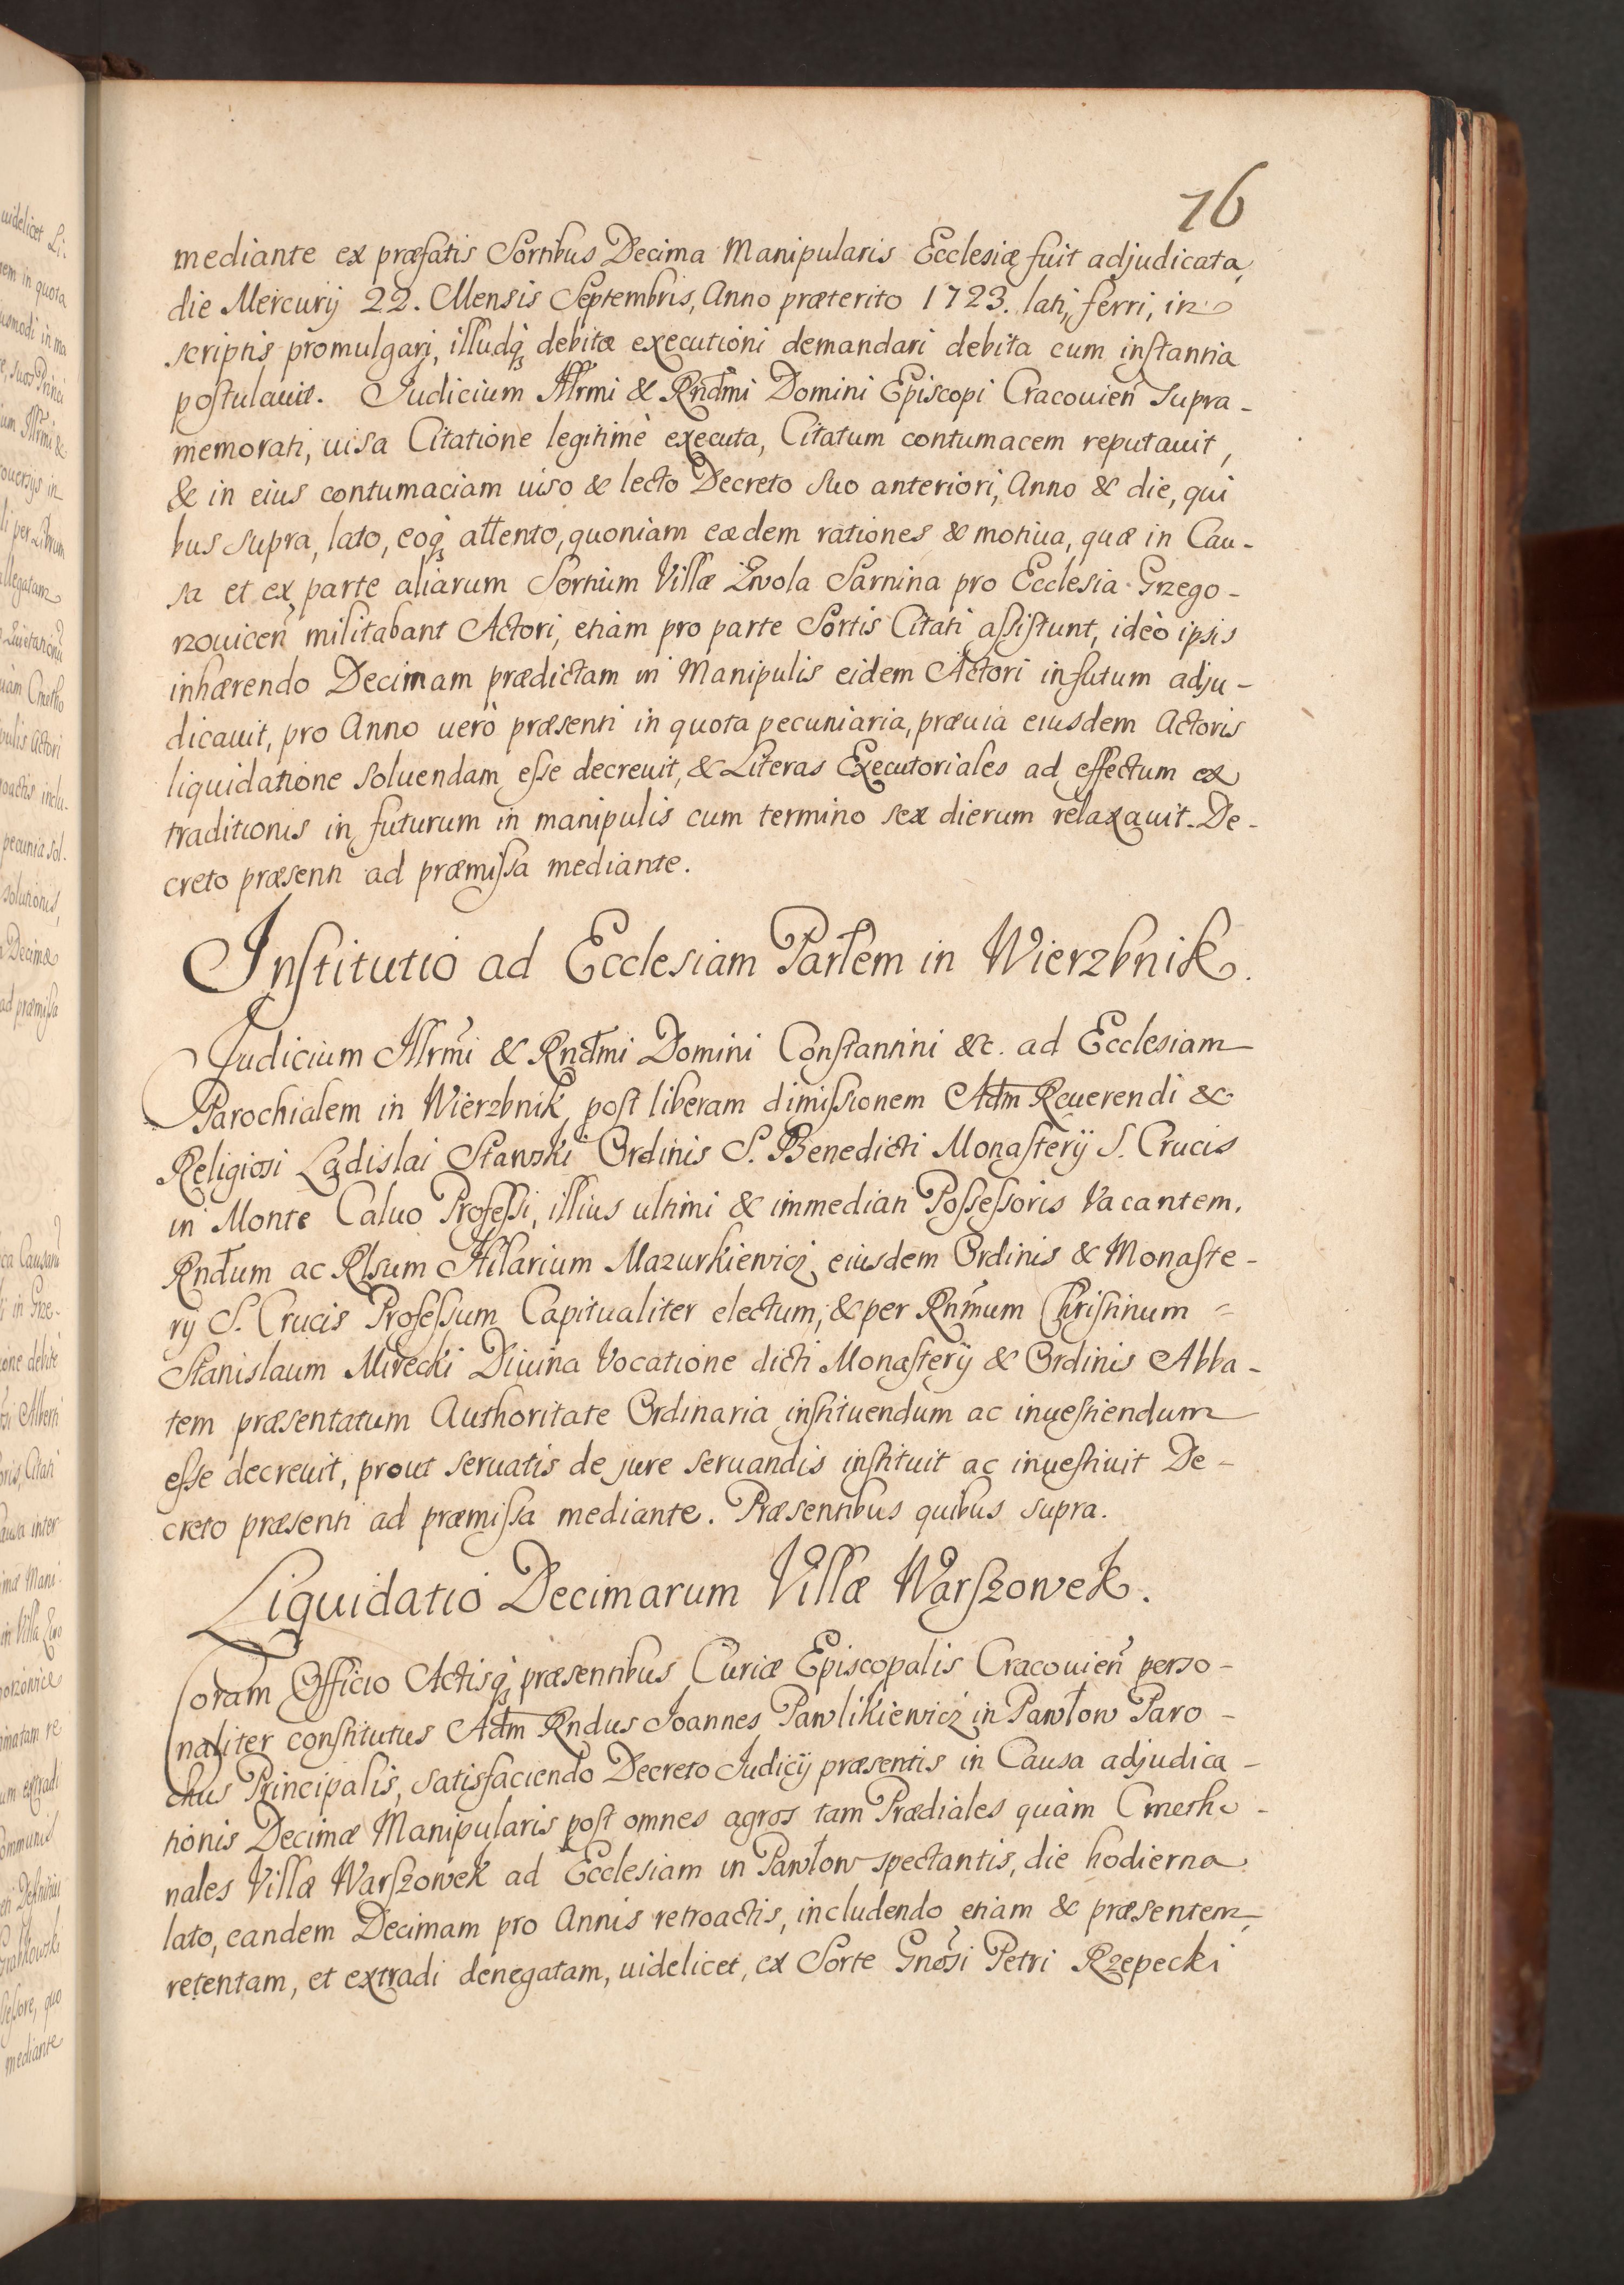 76
mediante ex præfatis Sortibus Decima Manipularis Ecclesiæ fuit adjudicata,
die Mercurij 22. Mensis Septembris, Anno præterito 1723. lati, ferri, in
scriptis promulgari, illudq₃ debitæ executioni demandari debita cum instantia
postulauit. Judicium Illr̃mi & Rnd̃mi Domini Episcopi Cracouien̄ supra-
memorati, uisa Citatione legitimè executa, Citatum contumacem reputauit,
& in eius contumaciam uiso & lecto Decreto suo anteriori, Anno & die, qui
bus supra, lato, eoq₃ attento, quoniam eædem rationes & motiua, quæ in Cau-
sa et ex parte aliarum Sortium Villæ Zwola Sarnina pro Ecclesia Grzego-
rzouicen̄ militabant Actori, etiam pro parte Sortis Citati assistunt, ideò ipsis
inhærendo Decimam prædictam in Manipulis eidem Actori in futum adju-
dicauit, pro Anno uerò præsenti in quota pecuniaria, præuia eiusdem Actoris
liquidatione soluendam esse decreuit, & Literas Executoriales ad effectum ex
traditionis in futurum in manipulis cum termino sex dierum relaxauit. De-
creto præsenti ad præmissa mediante.
Institutio ad Ecclesiam Parłem in Wierzbnik.
Judicium Illr̃mi & Rnd̃mi Domini Constantini &c. ad Ecclesiam
Parochialem in Wierzbnik, post liberam dimissionem Adm̄ Reuerendi &
Religiosi Ladislai Stawski Ordinis S. Benedicti Monasterij S. Crucis
in Monte Caluo Professi, illius ultimi & immediati Possessoris Vacantem,
Rnd̃um ac Rlsum Hilarium Mazurkiewicz eiusdem Ordinis & Monaste-
rij S. Crucis Professum Capitualiter electum, & per Rñmum Christinum =
Stanislaum Mirecki Diuina Vocatione dicti Monasterij & Ordinis Abba-
tem præsentatum Authoritate Ordinaria instituendum ac inuestiendum
esse decreuit, prout seruatis de jure seruandis instituit ac inuestiuit De-
creto præsenti ad præmissa mediante. Præsentibus quibus supra.
Liquidatio Decimarum Villæ Warszowek.
Coram Officio Actisq₃ præsentibus Curiæ Episcopalis Cracouien̄ perso-
naliter constitutus Adm̄ Rndus Joannes Pawlikiewicz in Pawłow Paro-
chus Principalis, satisfaciendo Decreto Judicij præsentis in Causa adjudica-
tionis Decimæ Manipularis post omnes agros tam Prædiales quàm Cmetho-
nales Villæ Warszowek ad Ecclesiam in Pawłow spectantis, die hodierna
lato, eandem Decimam pro Annis retroactis, includendo etiam & præsentem,
retentam, et extradi denegatam, uidelicet, ex Sorte Gnõsi Petri Rzepecki